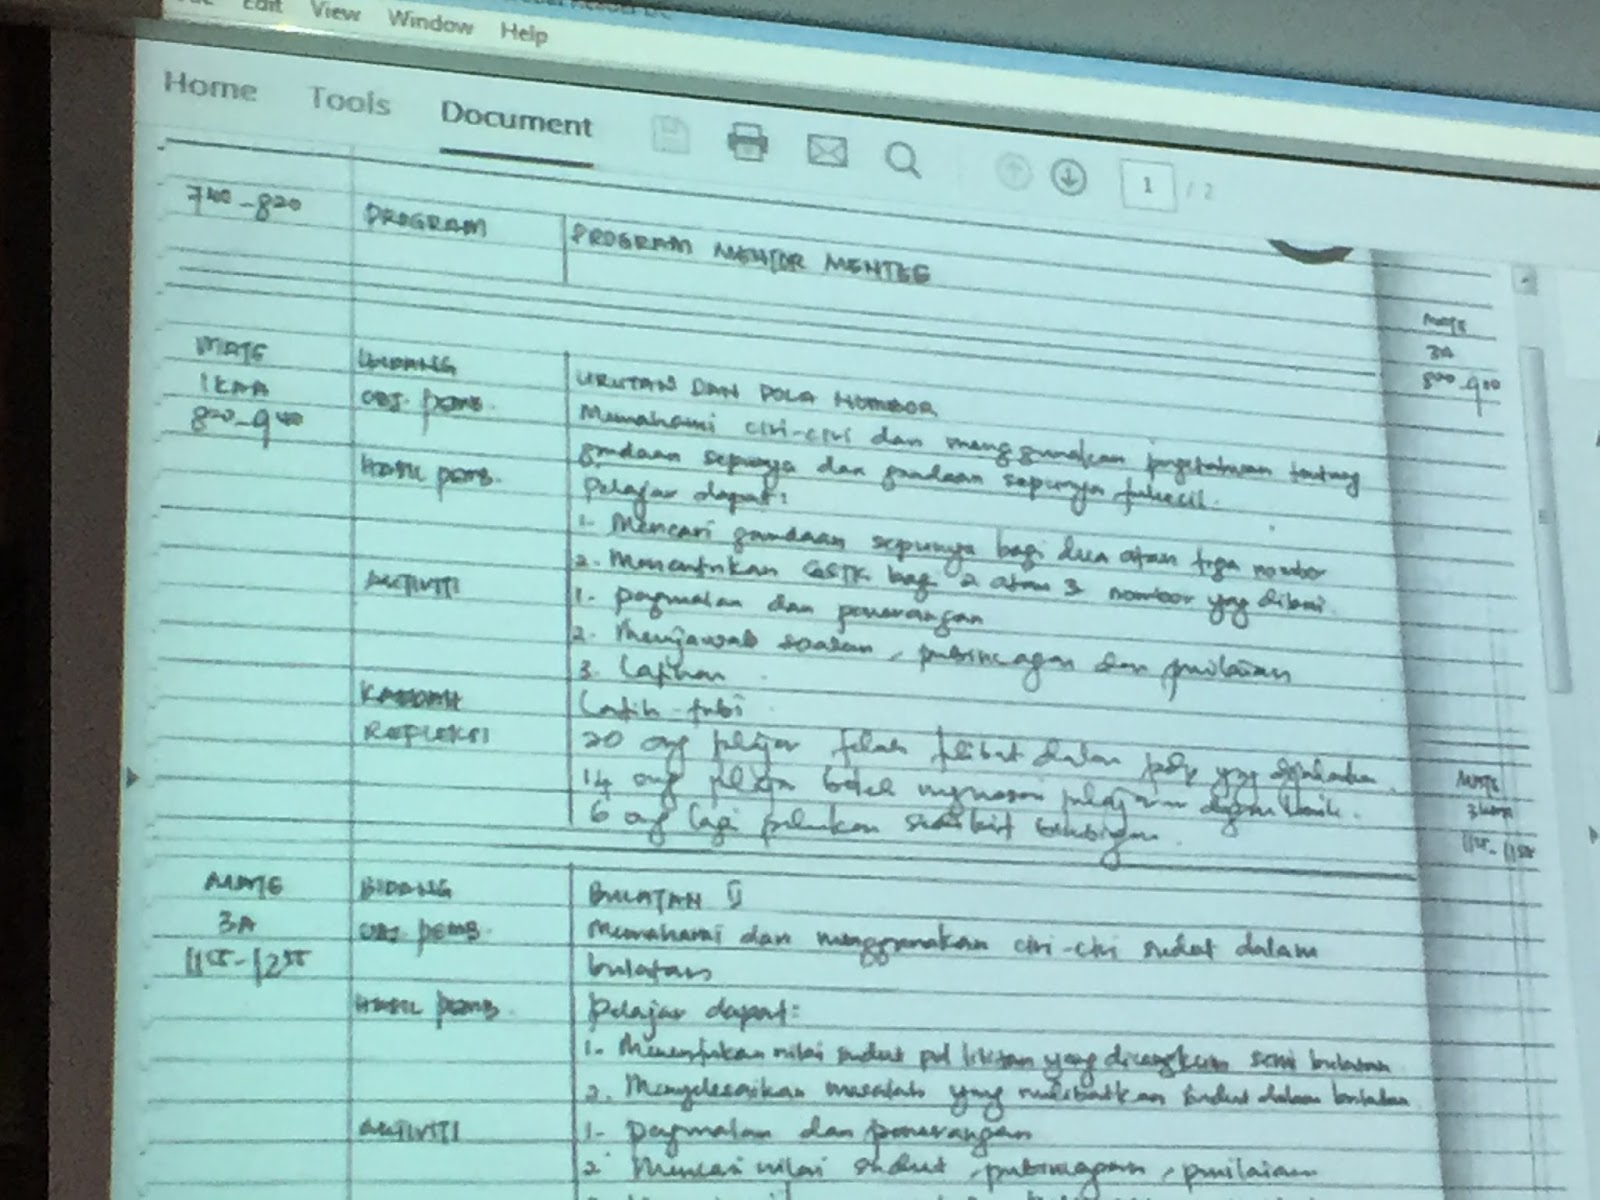 Edit View Window Help
Home Tools Document
1 / 2
7 40 - 8 20 PROGRAM PROGRAM MENTOR MENTEE
MATE BIDANG URUTAN DAN POLA NOMBOR
1 KAA OBJ. PEMB. Memahami ciri-ciri dan menggunakan pengetahuan tentang
8 20 - 9 40 gandaan sepunya dan gandaan sepunya terkecil.
HASIL PEMB. Pelajar dapat:
1. Mencari gandaan sepunya bagi dua atau tiga nombor
2. Menentukan GSTK bagi 2 atau 3 nombor yg diberi.
AKTIVITI 1. Pengenalan dan penerangan
2. Menjawab soalan, perbincangan dan penilaian
3. Latihan
KAEDAH Latih tubi
REFLEKSI 20 org pelajar telah terlibat dalam pdp yang dijalankan
14 org pelajar boleh menguasai pelajaran dengan baik.
6 org lagi perlukan sedikit bimbingan.
MATE BIDANG BULATAN II
3A OBJ. PEMB. Memahami dan menggunakan ciri-ciri sudut dalam
11 55 - 12 55 bulatan
HASIL PEMB. Pelajar dapat:
1. Menentukan nilai sudut pd lilitan yang dicangkum semi bulatan
2. Menyelesaikan masalah yang melibatkan sudut dalam bulatan
AKTIVITI 1. Pengenalan dan penerangan
2. Mencari nilai sudut, perbincangan, penilaian
MATE
3A
8 00 - 9 00
MATE